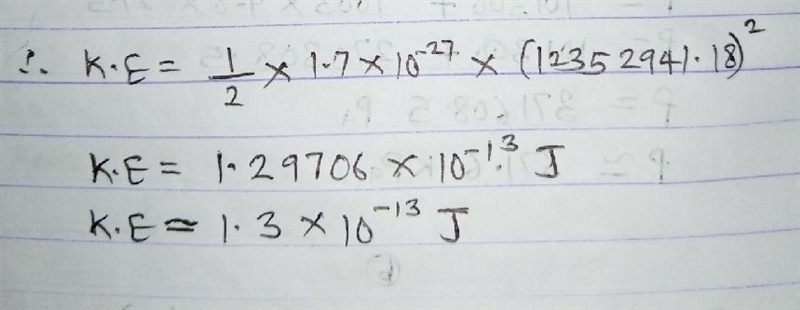 ∴ K.E = 1/2 × 1.7 × 10^-27 × (12352941.18)^2
K.E = 1.29706 × 10^-13 J
K.E ≃ 1.3 × 10^-13 J